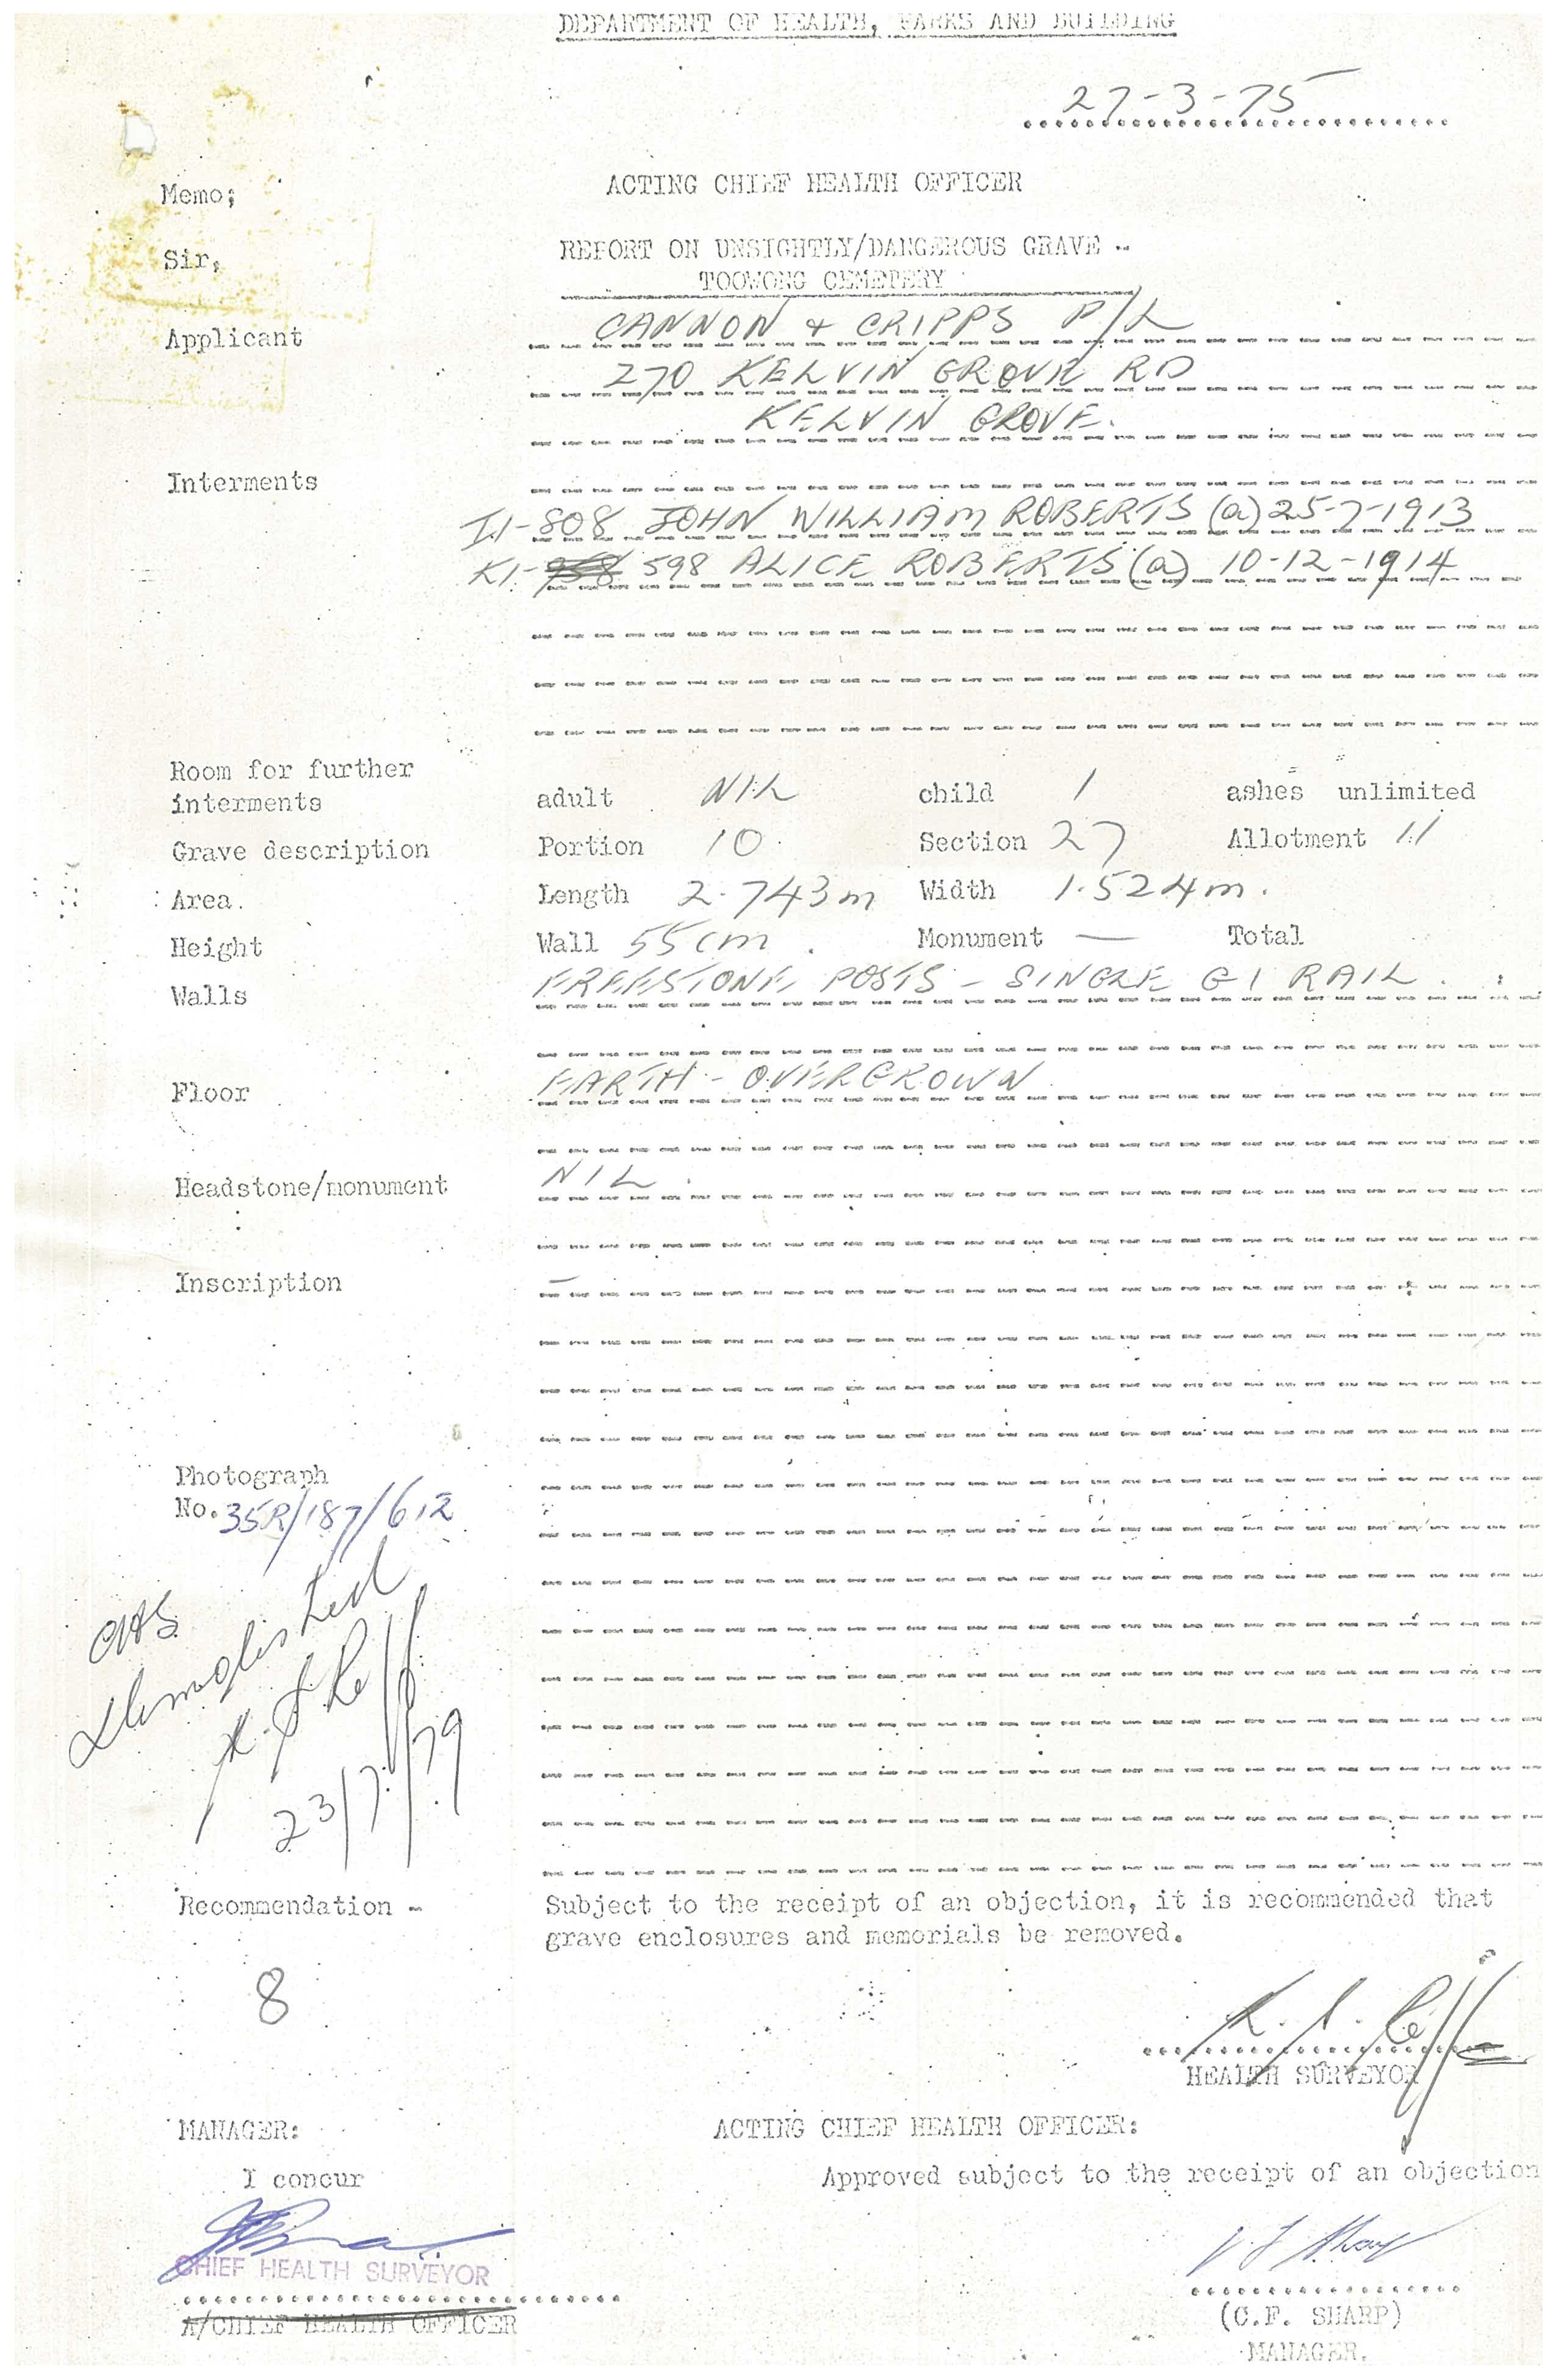 DEPARTMENT OF HEALTH, PARKS AND BUILDING
27-3-75
Memo; ACTING CHIEF HEALTH OFFICER
Sir, REPORT ON UNSIGHTLY/DANGEROUS GRAVE --
TOOWONG CEMETERY
Applicant CANNON & CRIPPS P/L
270 KELVIN GROVE RD
KELVIN GROVE.
Interments
I1-808 JOHN WILLIAM ROBERTS (a) 25-7-1913
K1- 598 ALICE ROBERTS (a) 10-12-1914
Room for further
interments adult NIL child 1 ashes unlimited
Grave description Portion 10 Section 27 Allotment 11
Area. Length 2.743m Width 1.524m.
Height Wall 55cm. Monument — Total
Walls FREESTONE POSTS - SINGLE GI RAIL.
Floor EARTH - OVERGROWN
Headstone/monument NIL.
Inscription —
Photograph
No. 35R/187/612
Demolished
23/7/79
Recommendation - Subject to the receipt of an objection, it is recommended that
grave enclosures and memorials be removed.
8
HEALTH SURVEYOR
MANAGER: ACTING CHIEF HEALTH OFFICER:
I concur Approved subject to the receipt of an objection
CHIEF HEALTH SURVEYOR
A/CHIEF HEALTH OFFICER (C.F. SHARP)
MANAGER.